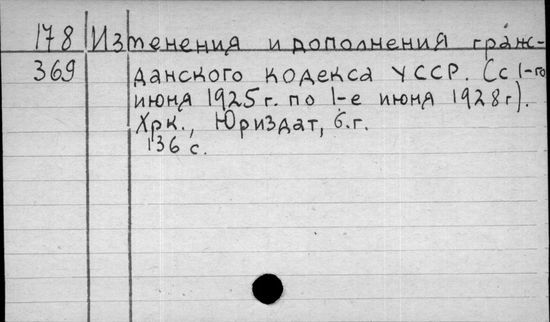 178 Изменения и дополнения граж-
369 данского кодекса УССР. (с 1-го
июня 1925 г. по 1-е июня 1928 г).
Хрк., Юриздат, б.г.
136 с.